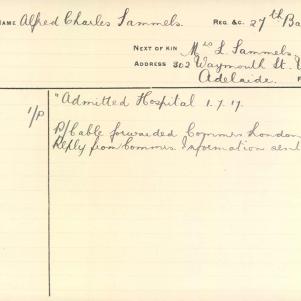 NAME Alfred Charles Sammels. REG. &C. 27th Ba
NEXT OF KIN Mrs L. Sammels,
ADDRESS 302 Waymouth St.
Adelaide.
"Admitted Hospital 1.7.17.
1/P
P/Cable forwarded Commrs London
Reply from Commrs. Information sent